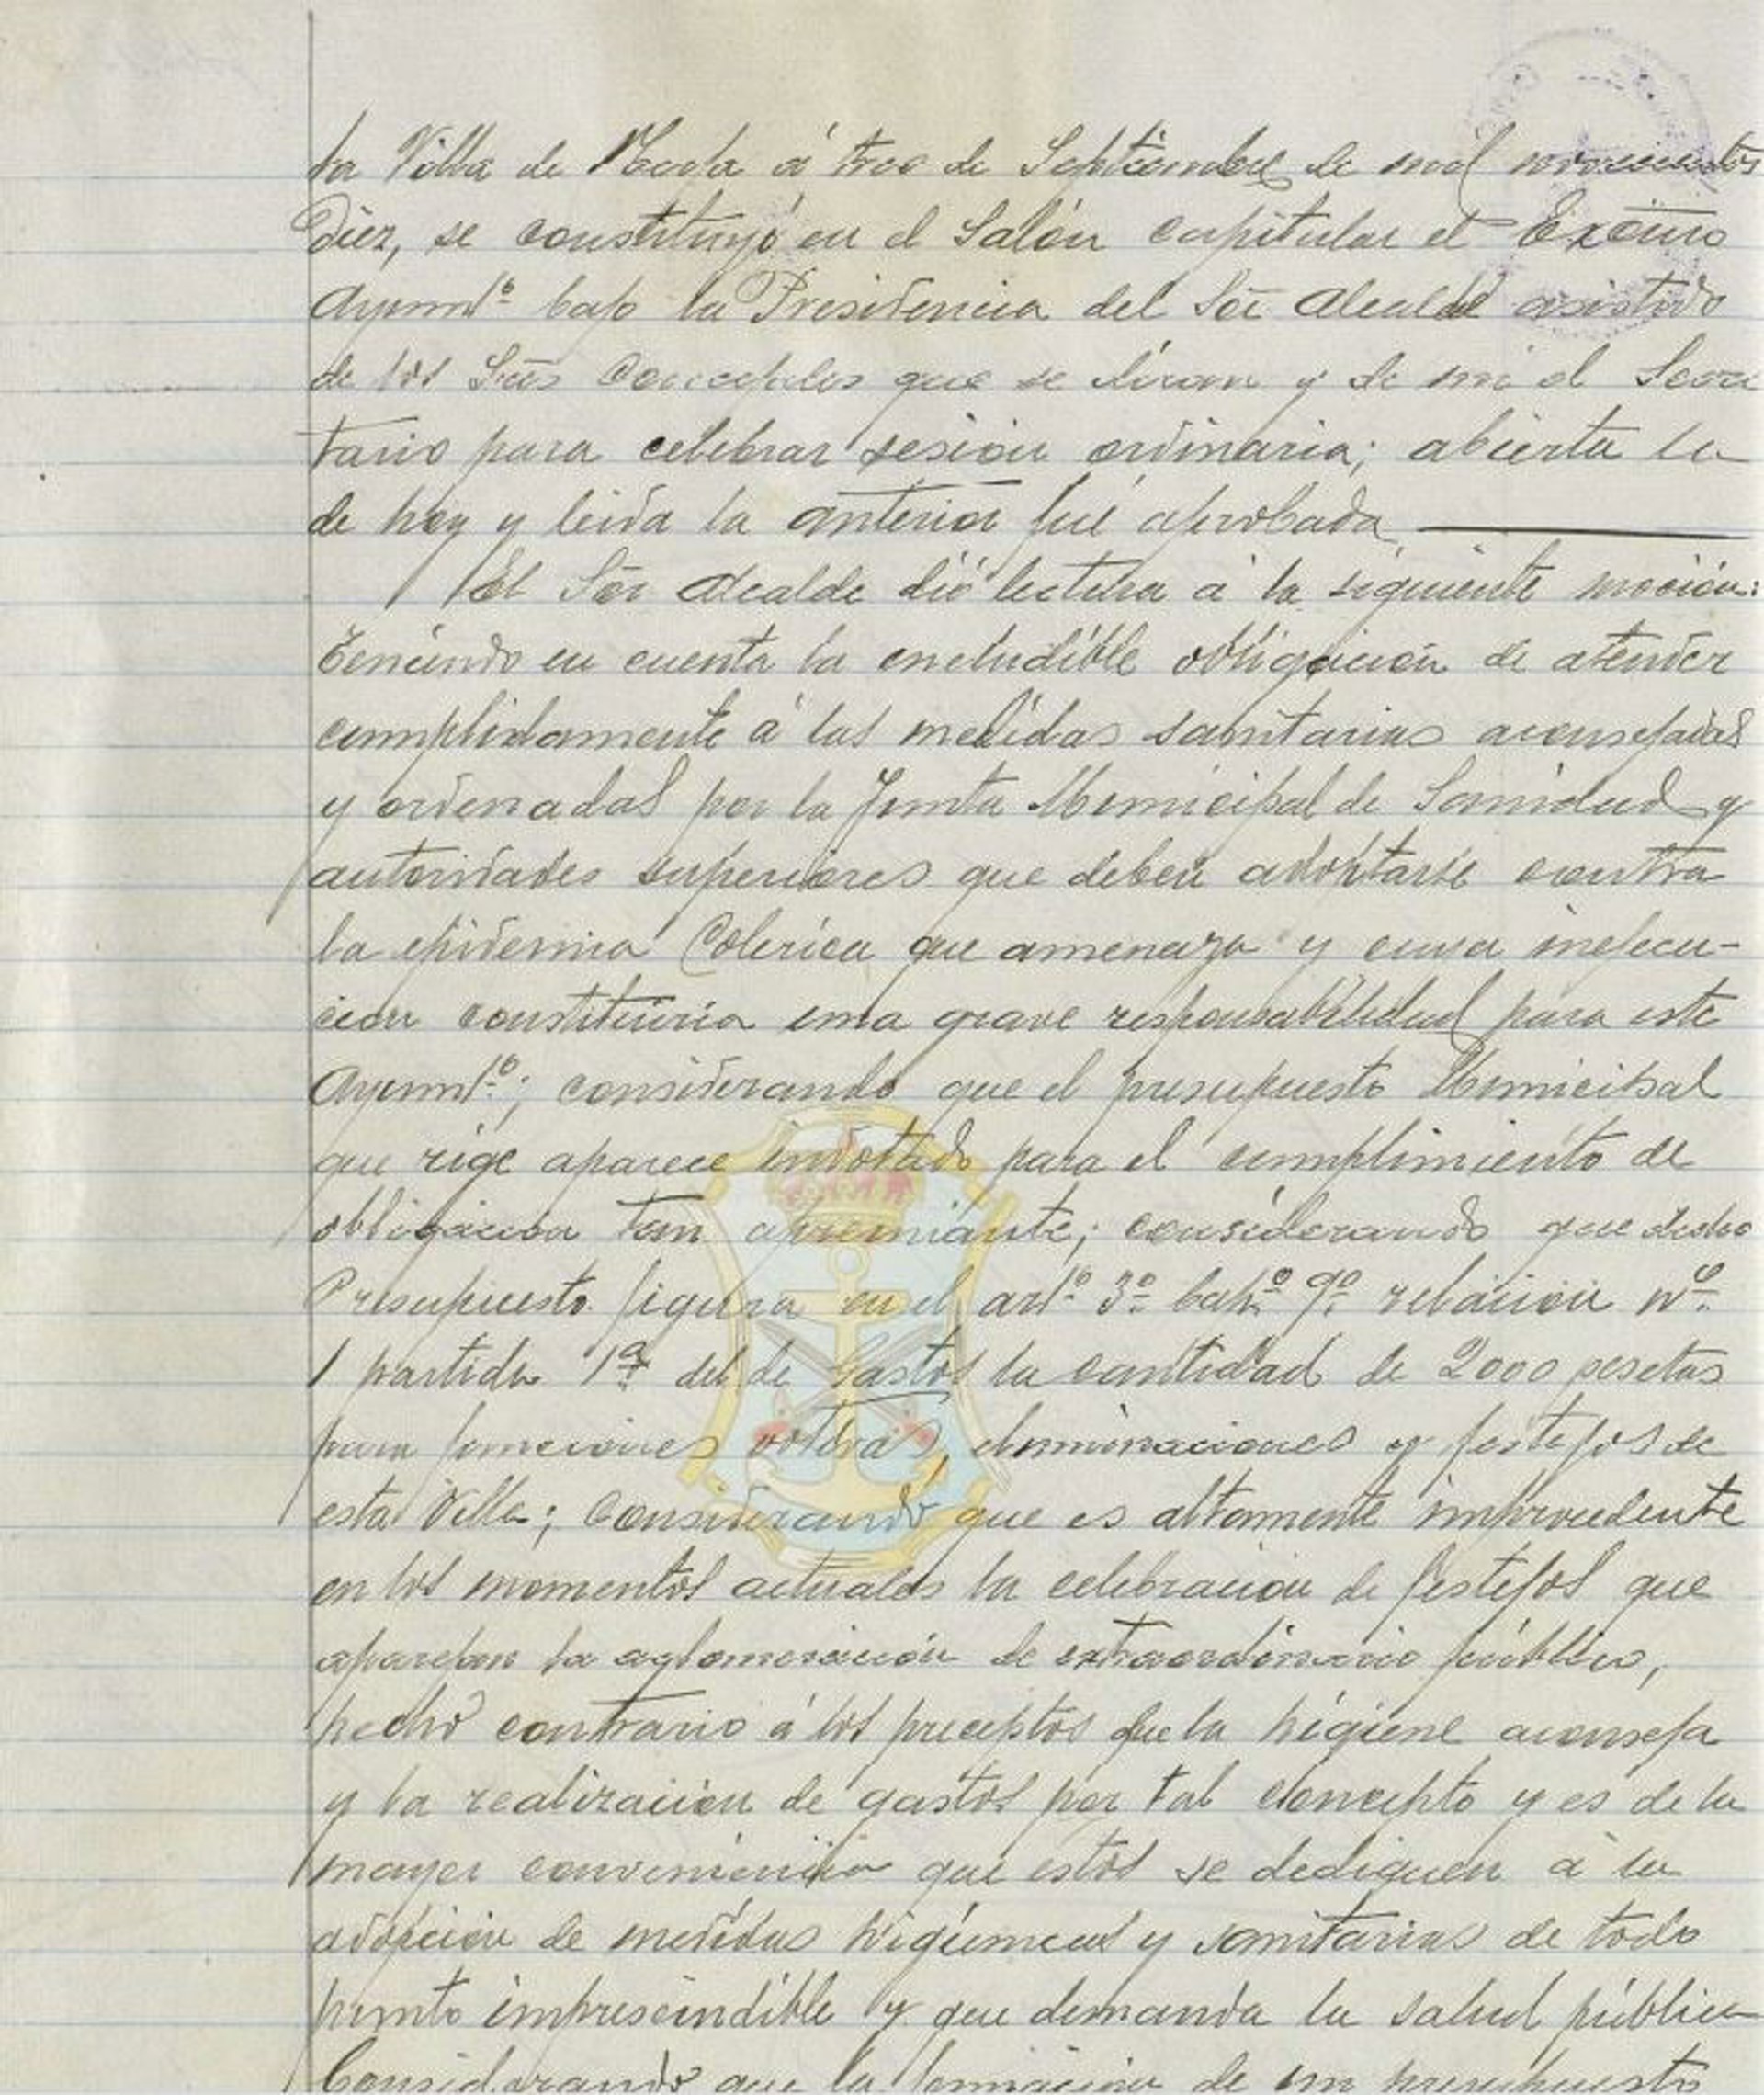 la Villa de Rota á tres de Septiembre de mil novecientos
Diez, se constituyó en el Salón capitular el Excmo
Ayunmtº bajo la Presidencia del Sor Alcalde asistido
de los Sres Concejales que se dirán y de mi el Secre
tario para celebrar sesión ordinaria; abierta la
de hoy y leida la anterior fué aprobada
El Sor Alcalde dió lectura á la siguiente moción:
Teniendo en cuenta la ineludible obligación de atender
cumplidamente á las medidas sanitarias aconsejadas
y ordenadas por la Junta Municipal de Sanidad y
autoridades superiores que deben adoptarse contra
la epidemia Colérica que amenaza y cuya inejecu-
cion constituiria una grave responsabilidad para este
Ayunmtº; considerando que el presupuesto Municipal
que rige aparece indotado para el cumplimiento de
obligacion tan apremiante; considerando que dicho
Presupuesto figura en el artº 3º Capº 9º relacion nº
1 partida 1ª del de Gastos la cantidad de 2000 pesetas
para funciones votivas, iluminaciones y festejos de
esta Villa; Considerando que es altamente improcedente
en los momentos actuales la celebracion de festejos que
aparejan la aglomeración de extraordinario público,
hecho contrario á los preceptos que la higiene aconseja
y la realización de gastos por tal concepto y es de la
mayor conveniencia que estos se dediquen á la
adopción de medidas higiénicas y sanitarias de todo
punto imprescindible y que demanda la salud pública
Considerando que la formacion de un presupuesto